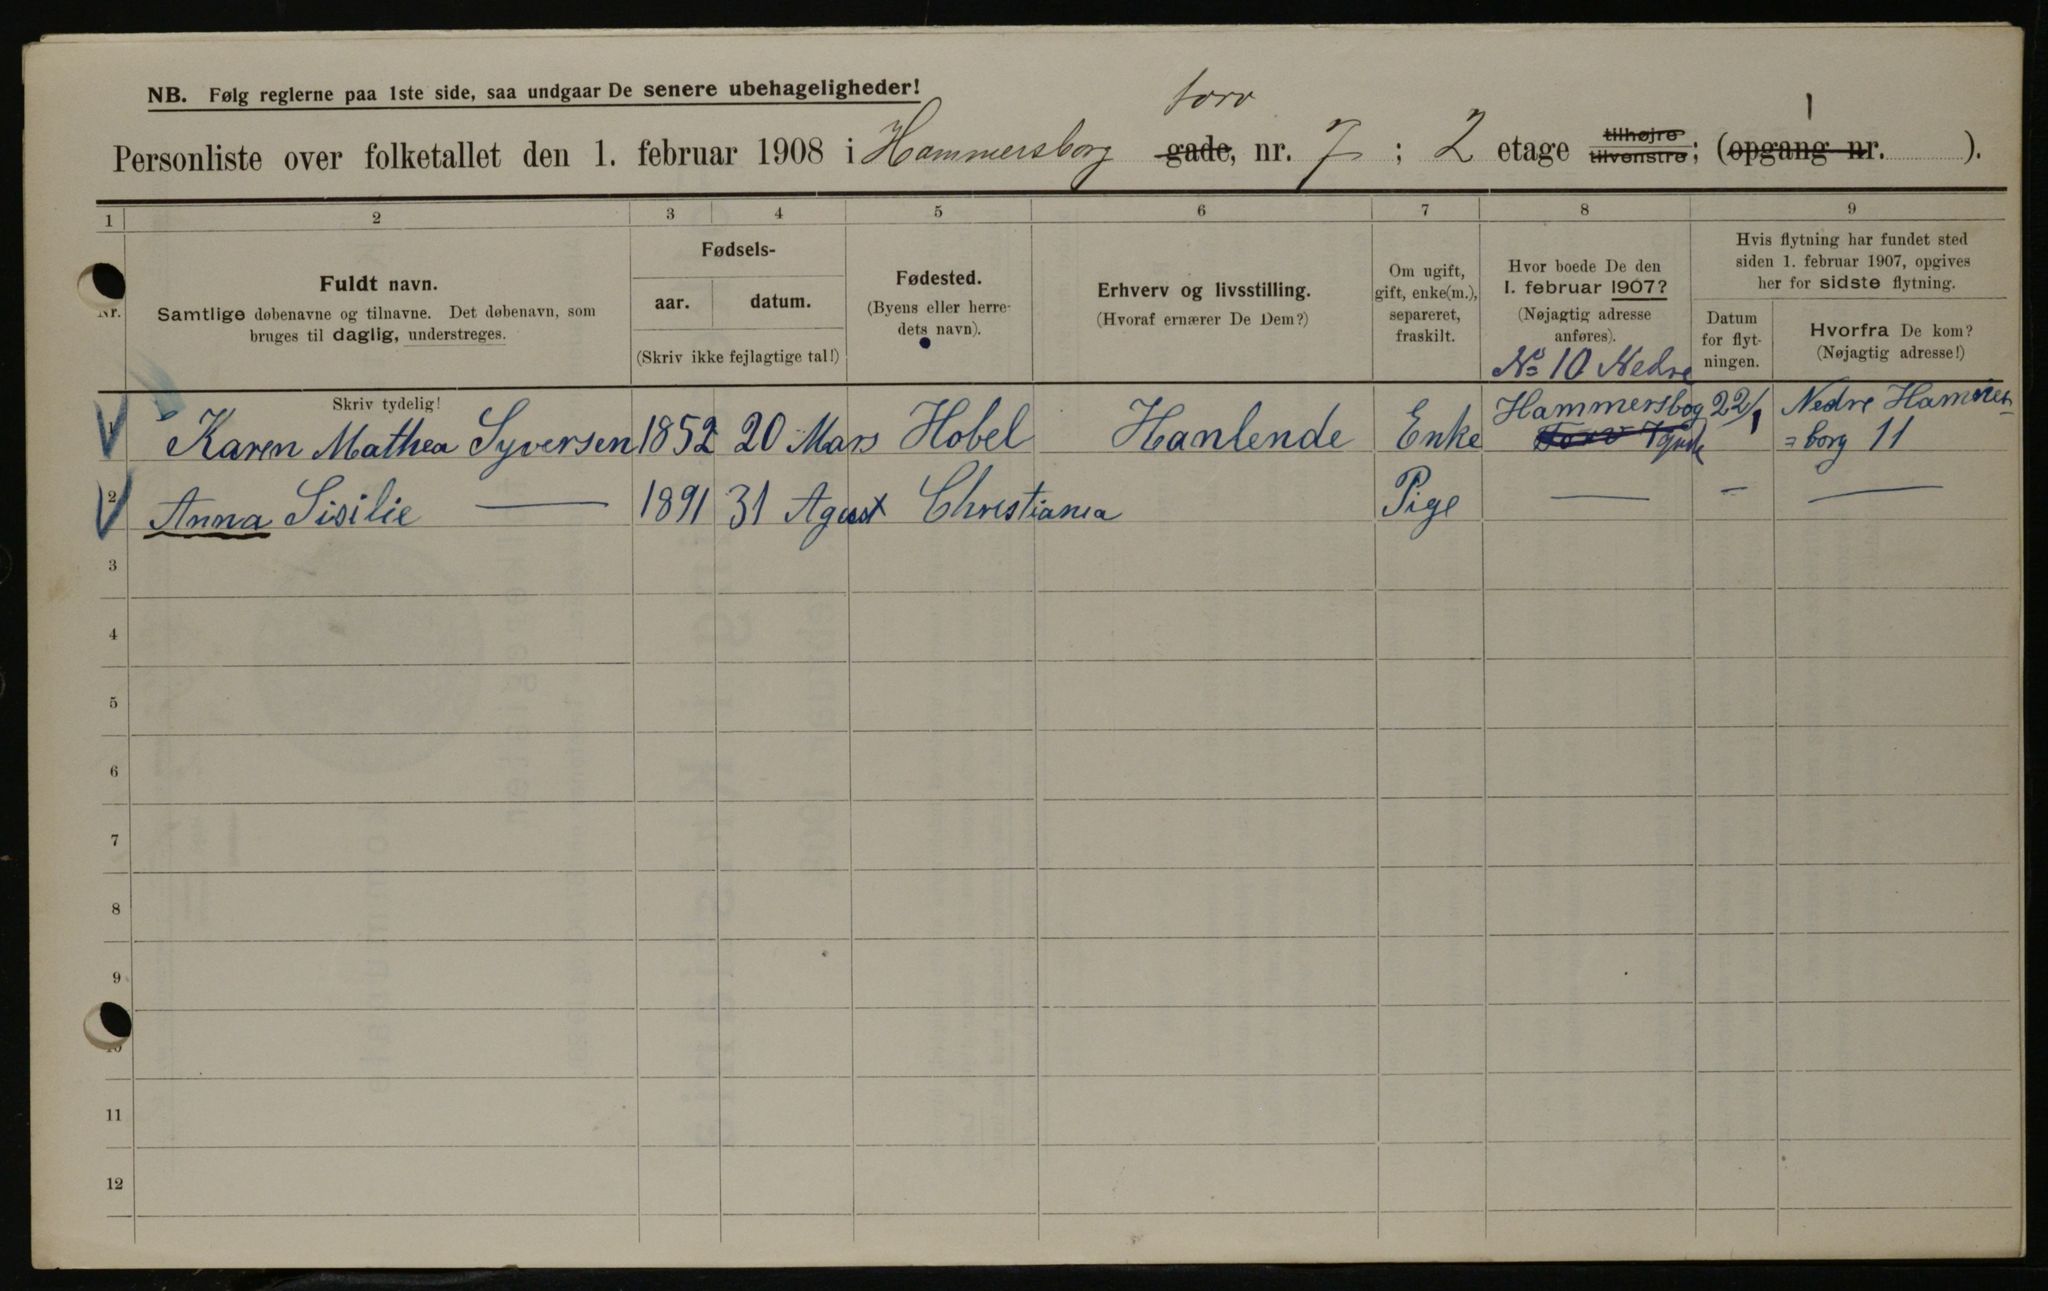 NB. Følg reglerne paa 1ste side, saa undgaar De senere ubehageligheder!
torv
1
Personliste over folketallet den 1. februar 1908 i Hammersborg gade, nr. 7; 2 etage tilhøjre tilvenstre; (opgang nr. ).
1 2 3 4 5 6 7 8 9
Nr.
Fuldt navn.
Samtlige døbenavne og tilnavne. Det døbenavn, som
bruges til daglig, understreges.
Skriv tydelig!
Fødsels-
aar. datum.
(Skriv ikke fejlagtige tal!)
Fødested.
(Byens eller herre-
dets navn).
Erhverv og livsstilling.
(Hvoraf ernærer De Dem?)
Om ugift,
gift, enke(m.),
separeret,
fraskilt.
Hvor boede De den
1. februar 1907?
(Nøjagtig adresse
anføres).
Hvis flytning har fundet sted
siden 1. februar 1907, opgives
her for sidste flytning.
Datum
for flyt-
ningen.
Hvorfra De kom?
(Nøjagtig adresse!)
No 10 Nedre
Hammersbog 22/1 Nedre Hammer-
1 Karen Mathea Syversen 1852 20 Mars Hobel Hanlende Enke Torv =borg 11
2 Anna Sisilie — 1891 31 Agust Christiania Pige — — —
3
4
5
6
7
8
9
10
11
12